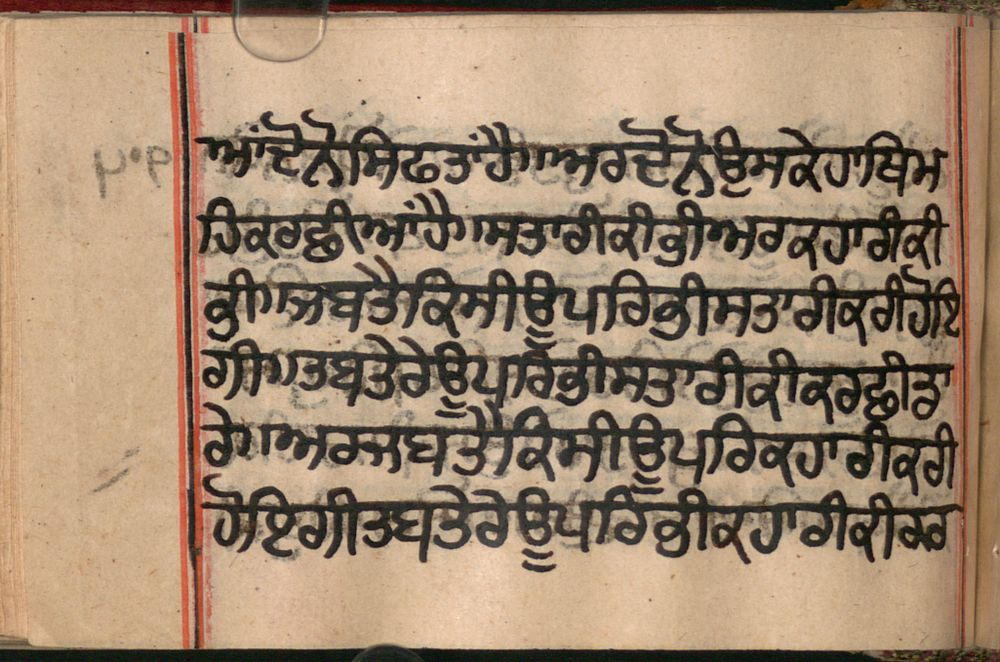 ਆਂਦੋਨੋਸਿਫਤਾਂਹੈ॥ਅਰਦੋਨੋਉਸਕੇਹਾਥਿਮ
ਹਿਕਰਛੀਆਂਹੈ॥ਸਤਾਰੀਕੀਭੀਅਰਕਹਾਰੀਕੀ
ਭੀ॥ਜਬਤੈਕਿਸੀਊਪਰਿਭੀਸਤਾਰੀਕਰੀਹੋਇ
ਗੀ॥ਤਬਤੇਰੇਊਪਰਿਭੀਸਤਾਰੀਕੀਕਰਛੀਤਾ
ਰੇ॥ਅਰਜਬਤੈਕਿਸੀਊਪਰਿਕਹਾਰੀਕਰੀ
ਹੋਇਗੀਤਬਤੇਰੇਊਪਰਿਭੀਕਹਾਰੀਕੀਕਰ